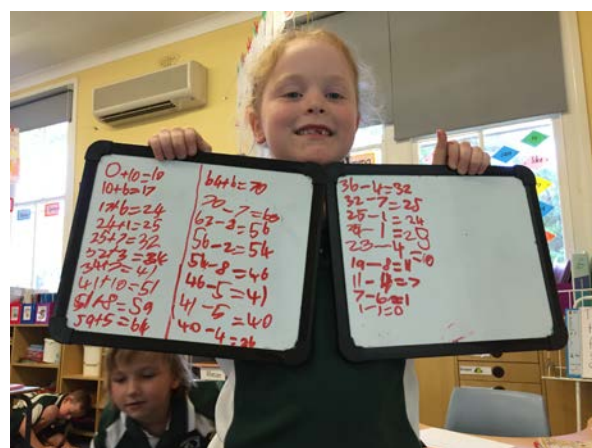 0+10=10
10+6=17
17+6=24
24+1=25
25+7=32
32+3=34
34+7=41
41+10=51
51+8=59
59+5=64
64+6=70
70-7=63
62-8=56
56-2=54
54-8=46
46-5=41
41-5=40
40-4=36
36-4=32
32-7=25
25-1=24
24-1=23
23-4=19
19-8=11
11-4=7
7-6=1
1-1=0